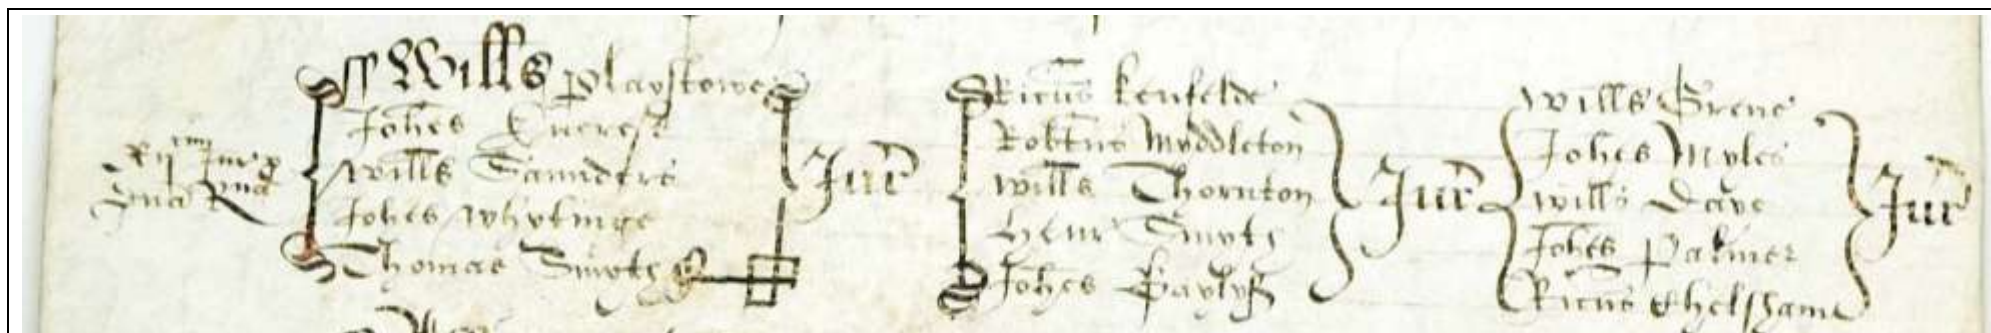 Willƨ Playstowe
Johes Everest
Willƨ Saunders
Johes Whytinge
Thomas Smyth
Jur
Ricus Kenfelde
Robtus Myddleton
Willƨ Thornton
Henr Smyth
Johes Paylyß
Jur
Willƨ Grene
Johes Myles
Willƨ Daye
Johes Palmer
Ricus Chelsham
Jur